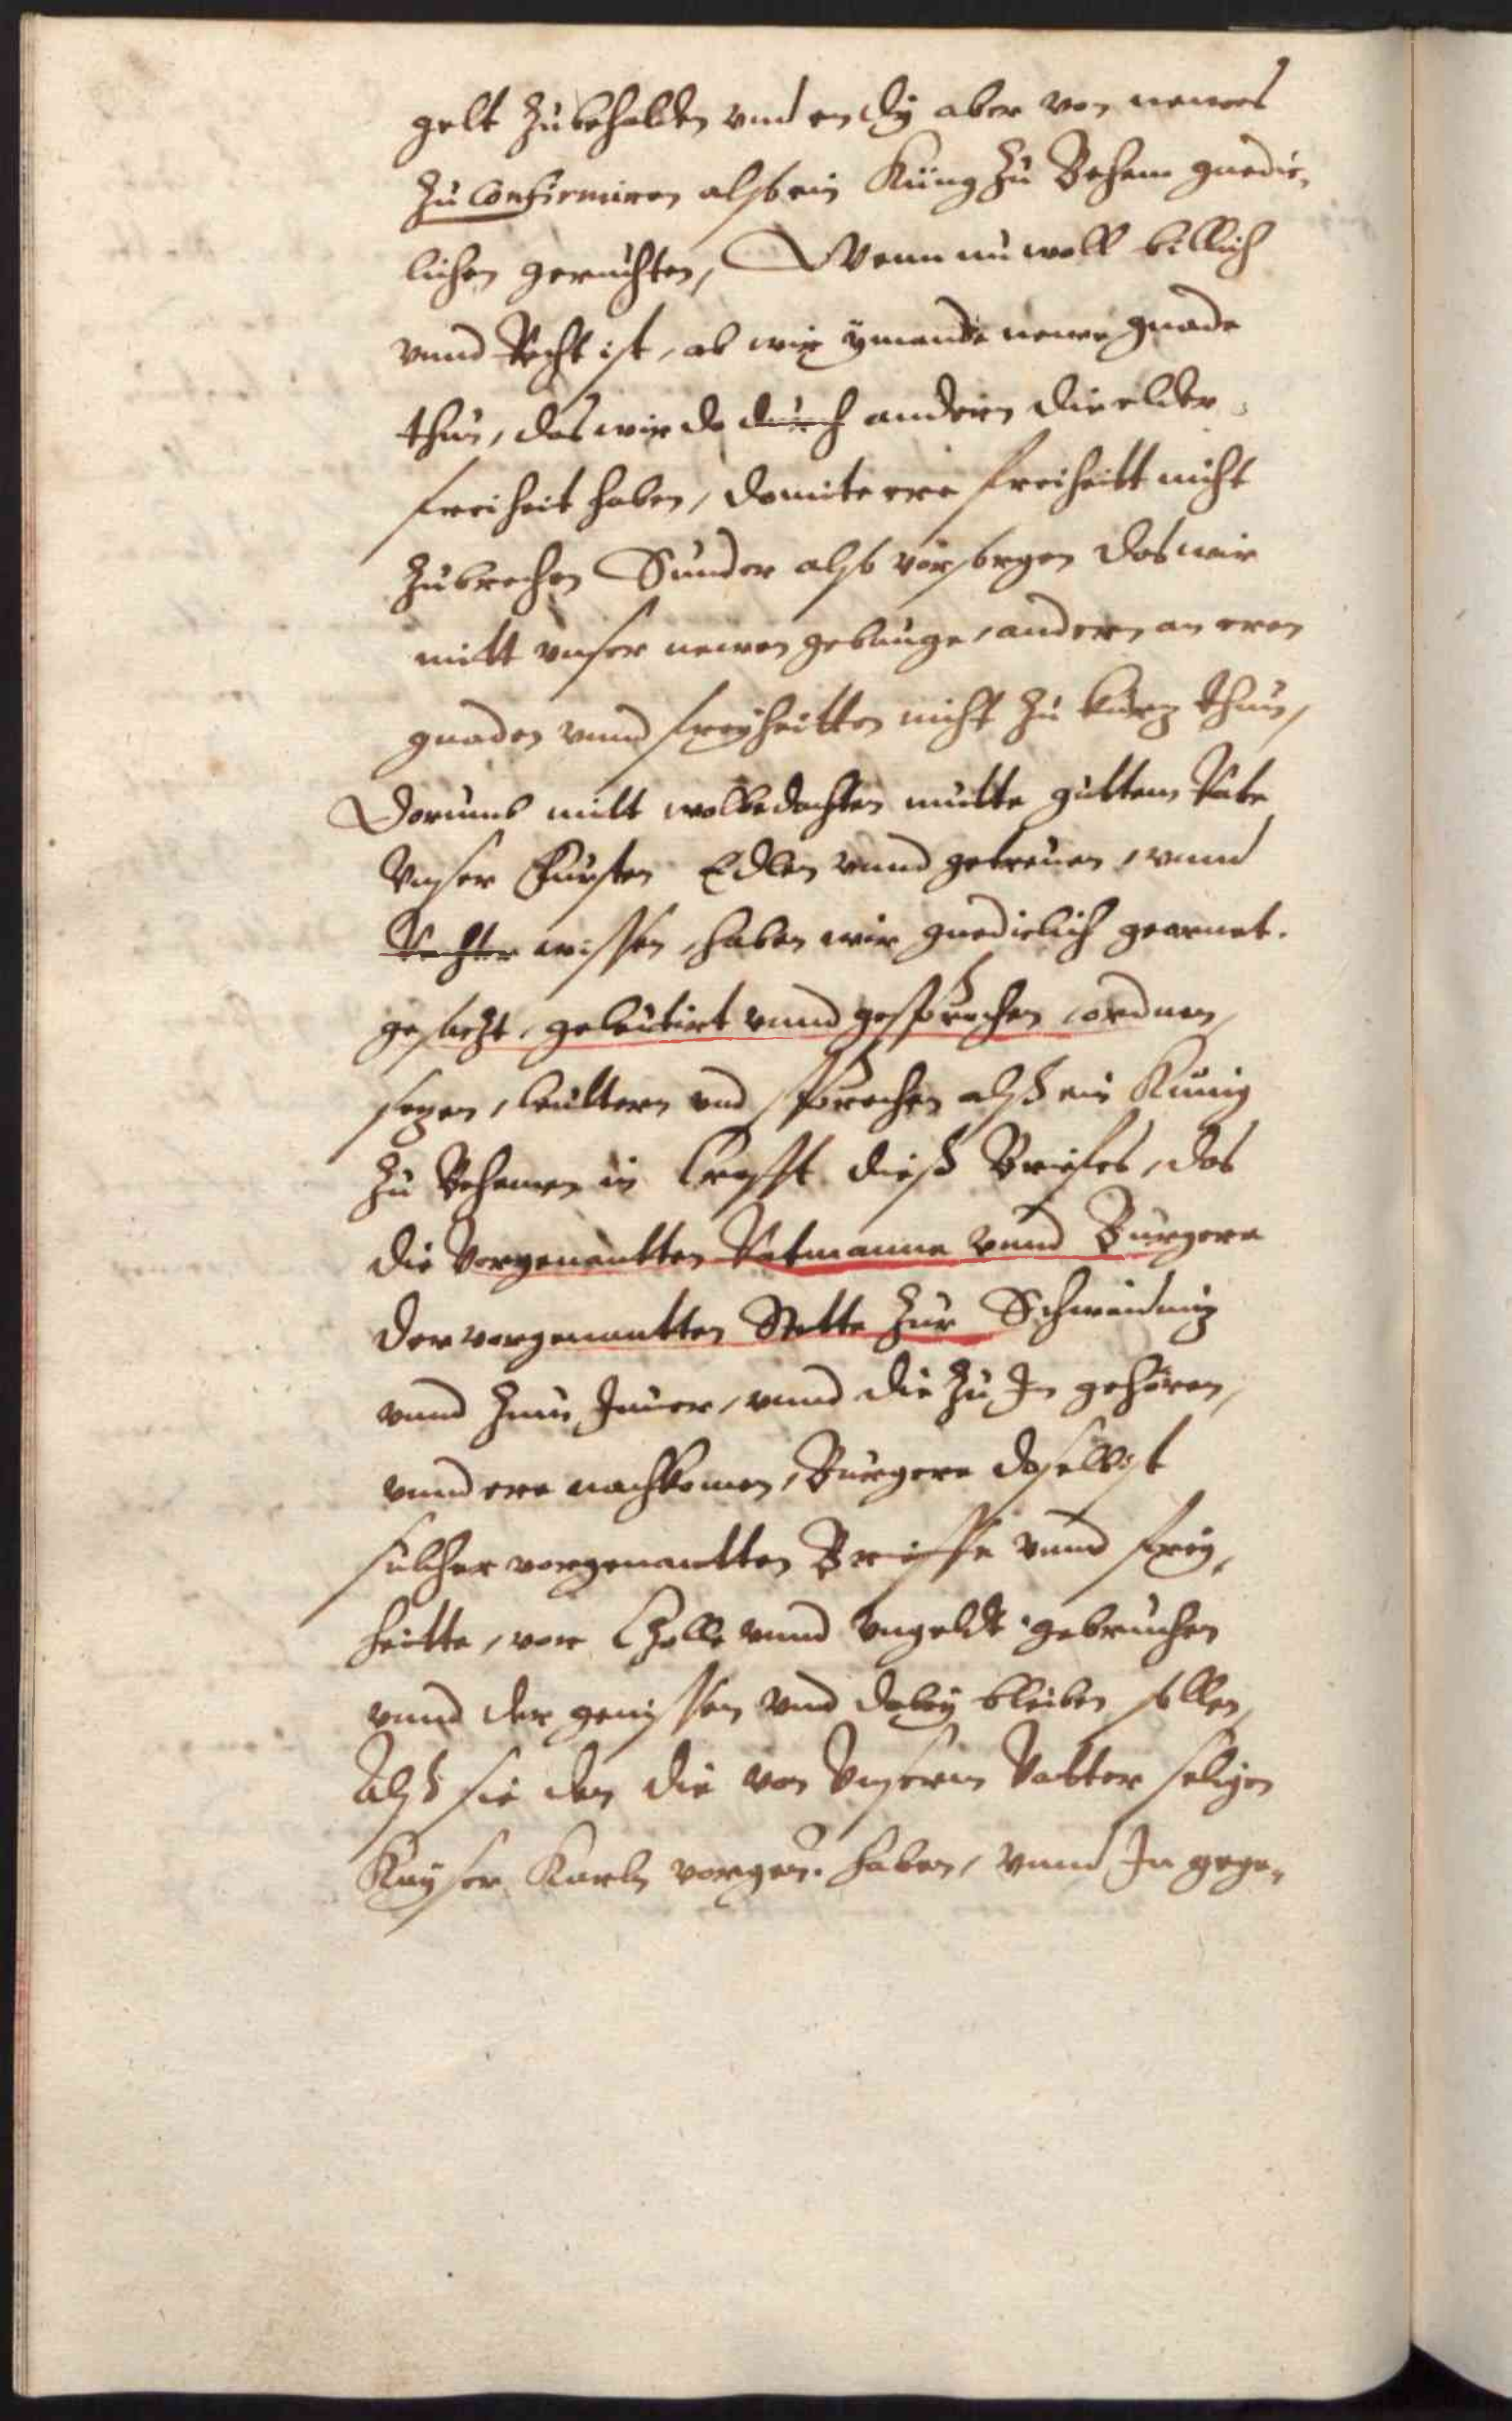 gelt zubehalden vnd en dÿ aber von newes
zu Confirmiren alß ein Küng zu Behem gnedic„
lichen geruchten, Wenn nu woll billich
vnnd Recht ist, ab wir ÿmande newe gnade
thun, das wir do durch andern die elder
freiheit haben, domite ere freiheitt nicht
zubrechen Sunder alß vorsorgen das wir
mitt vnser newen gebunge, andern an eren
gnaden vnnd freÿheitten nicht zu kurz thun,
Dorumb mitt wolbedachten mutte guttem Rate
Vnser Fursten Edlen vnnd getreuen, vnnd
Rechter wissen, haben wir gnediclich geornet.
gesaczt, geleutirt vnnd gesprochen, ordnen,
sezen, leuttern vnd sprechen alß ein Kunig
zu Behemen in Crafft dieß Briefes, das
die Vorgenantten Ratmanne vnnd Burgere
der vorgenantten Stette zur Schweidniz
vnnd zum Jauer, vnnd die zu In gehören,
vnnd ere nachkomen, Burgere doselbist
sulcher vorgenantten Brieffe vnnd freÿ„
heitte, vor Czolle vnnd vngeldt gebruchen
vnnd der genissen vnd dobeÿ bleiben sollen,
Alß sie den die von Vnserm Vatter seligen
Kayser Karln vorgen. haben, vnnd In gege„